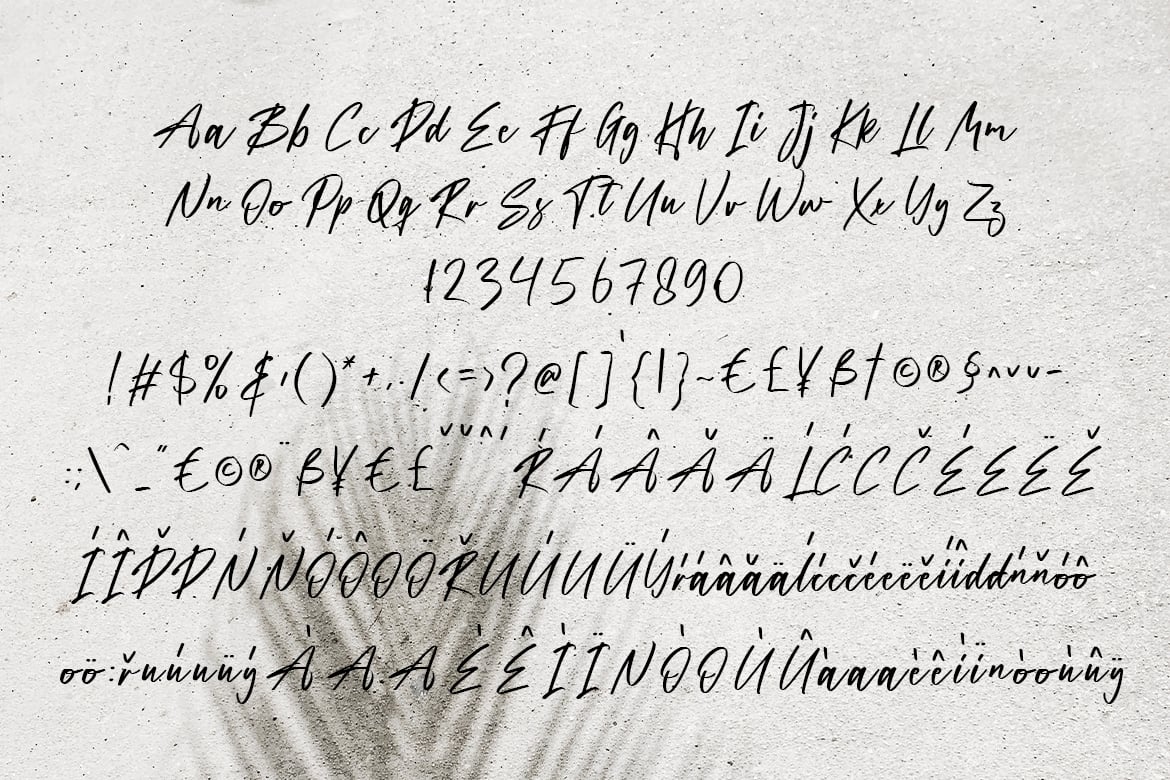 Aa Bb Cc Dd Ee Ff Gg Hh Ii Jj Kk Ll Mm
Nn Oo Pp Qq Rr Ss Tt Uu Vv Ww Xx Yy Zz
1234567890
!#$%&'()*+,./<=>?@[]`{|}~€£¥ß†©®§^ˇ˘-
:;\^_"€©®¨ß¥€£ˇ˘^´ŔÁÂĂÄĹĆCČÉEËĚ
ÍÎĎDŃŇÓÔOÖŘUÚUÜÝŕáâăäĺćcčéeëěíîddńňóô
oö:řuúuüýÀAAÈÊÌÏNÒOÙÛàaaèêìïnòoùûÿ